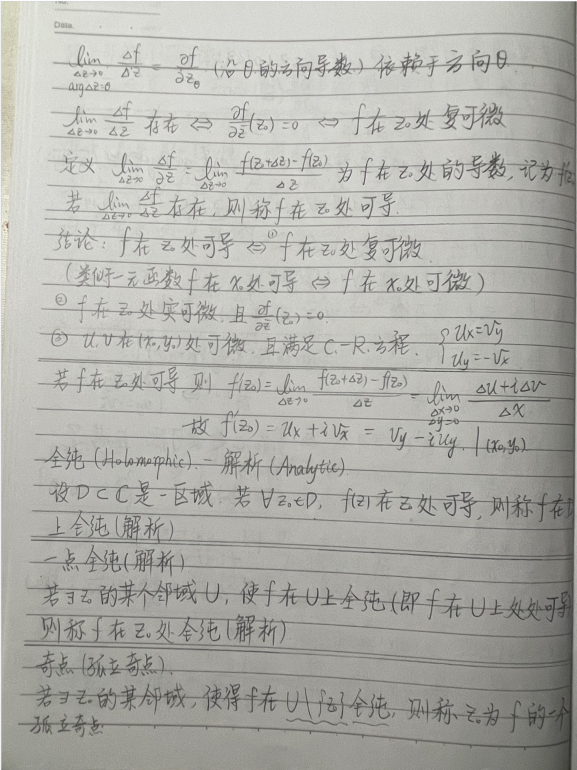 Date.
lim_{Δz→0, argΔz=θ} Δf/Δz = ∂f/∂z_θ (沿θ的方向导数) 依赖于方向θ
lim_{Δz→0} Δf/Δz 存在 ⇔ ∂f/∂z̄(z₀)=0 ⇔ f在z₀处复可微
定义 lim_{Δz→0} Δf/Δz = lim_{Δz→0} (f(z₀+Δz)-f(z₀))/Δz 为f在z₀处的导数, 记为f'(z₀
若 lim_{Δz→0} Δf/Δz 存在, 则称f在z₀处可导.
结论: f在z₀处可导 ⇔① f在z₀处复可微.
(类似于一元函数f在x₀处可导 ⇔ f在x₀处可微)
② f在z₀处实可微, 且 ∂f/∂z̄(z₀)=0.
③ u,v在(x₀,y₀)处可微, 且满足C.-R.方程. { uₓ=v_y
u_y=-vₓ
若f在z₀处可导 则 f'(z₀)=lim_{Δz→0} (f(z₀+Δz)-f(z₀))/Δz = lim_{Δx→0, Δy=0} (Δu+iΔv)/Δx
故 f'(z₀)=uₓ+ivₓ = v_y-iu_y |(x₀,y₀)
全纯(Holomorphic). - 解析(Analytic)
设D⊂C是一区域. 若∀z₀∈D, f(z)在z₀处可导, 则称f在D
上全纯(解析)
一点全纯(解析)
若∃z₀的某个邻域U, 使f在U上全纯(即f在U上处处可导)
则称f在z₀处全纯(解析)
奇点(孤立奇点).
若∃z₀的某邻域, 使得f在U\{z₀}全纯, 则称z₀为f的一个
孤立奇点